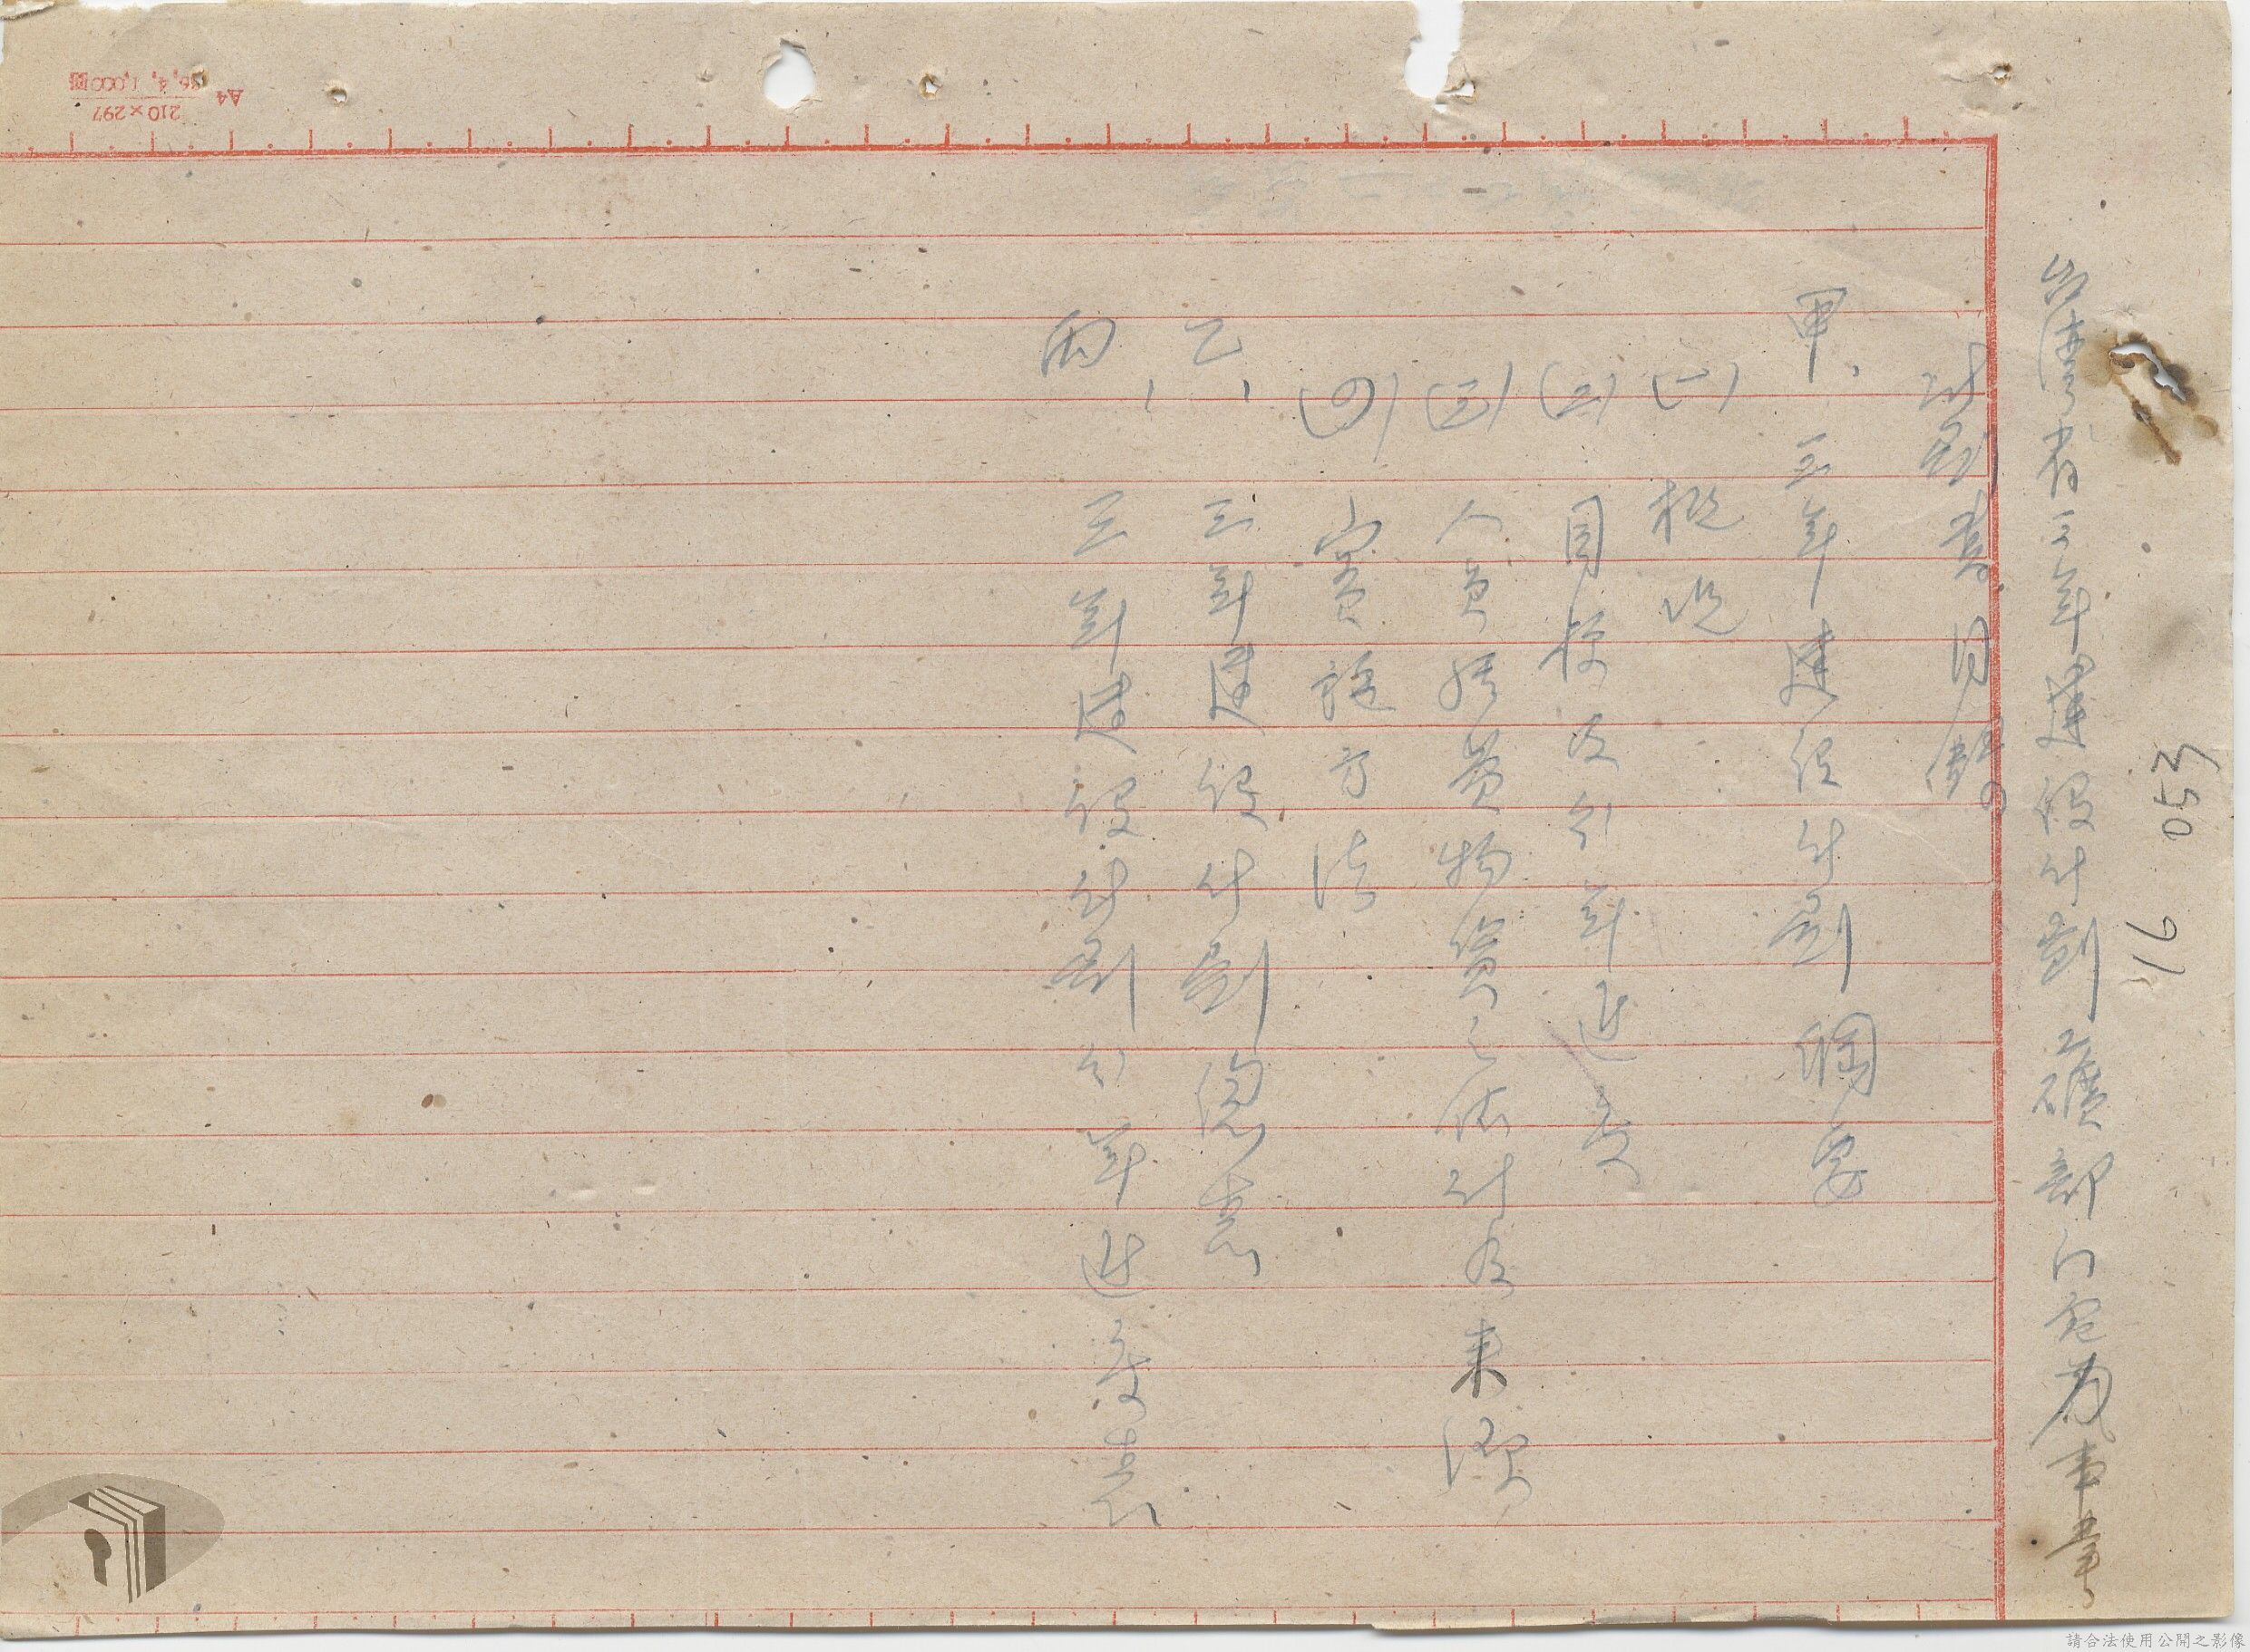 台灣省三年建設計劃工礦部門完成事業
計劃書目錄
甲、三年建設計劃綱要
(一)概說
(二)目標及分年進度
(三)人員經費物資之估計及來源
(四)實施方法
乙、三年建設計劃總表
丙、三年建設計劃分年進度表
053
16
A4 210×297
請合法使用公開之影像